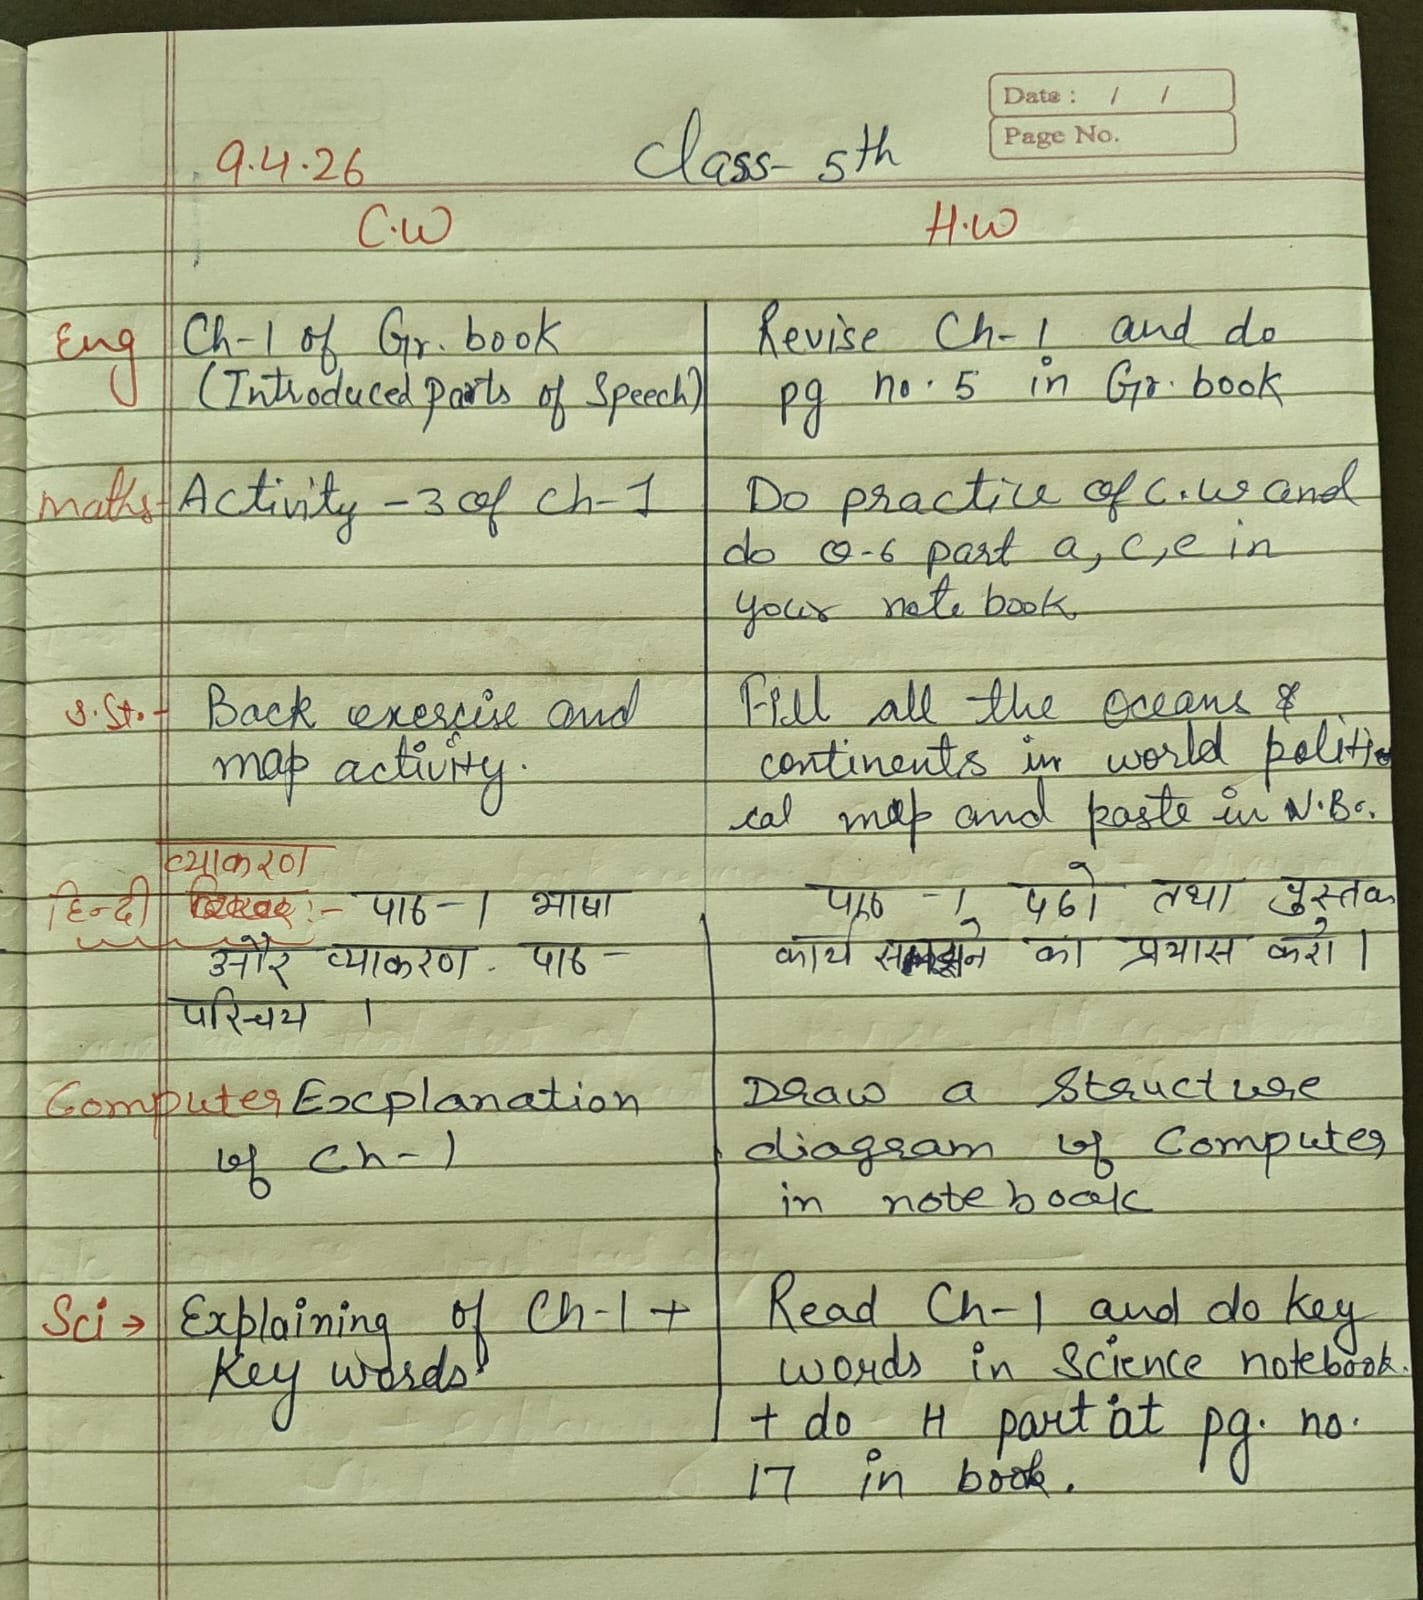 Date : / /
Page No.
9.4.26 Class- 5th
C.W H.W
Eng Ch-1 of Gr. book Revise Ch-1 and do
(Introduced parts of Speech) pg no. 5 in Gr. book
Maths- Activity -3 of ch-1 Do practice of C.W and
do Q-6 part a, c, e in
your note book
S.St.- Back exercise and Fill all the oceans &
map activity. continents in world politi
cal map and paste in N.B.
व्याकरण
हिन्दी :- पाठ-1 भाषा पाठ -1 पढो तथा पुस्तक
और व्याकरण. पाठ- कार्य समझने का प्रयास करो।
परिचय ।
Computer Explanation Draw a Structure
of Ch-1 diagram of Computer
in note book
Sci → Explaining of Ch-1 + Read Ch-1 and do key
Key words words in Science notebook.
+ do H part at pg. no.
17 in book.